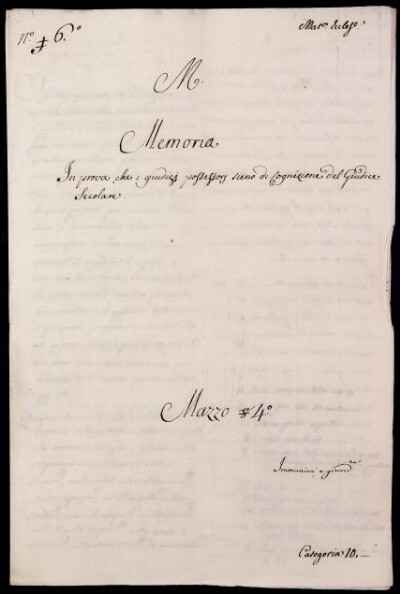 N.º 6.º
Mat.e Eccles.e
M.
Memoria
In prova che i giudizj possessorj sieno di Cognizione del Giudice
Secolare
Mazzo 4º
Immunità e giurisd.
Categoria 10.